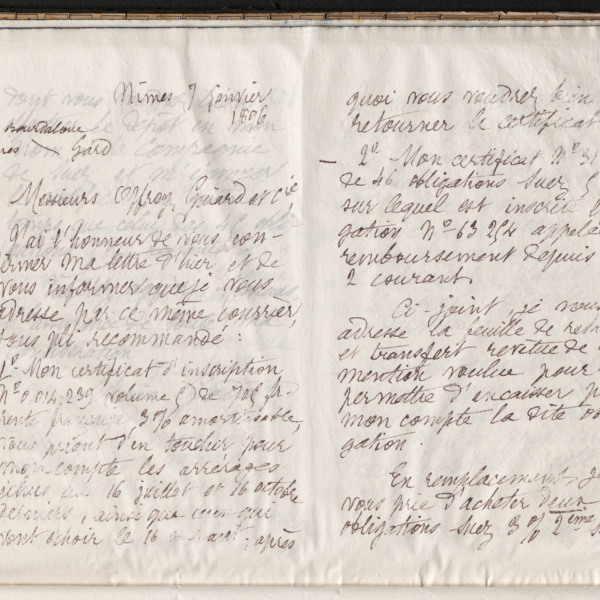 Nîmes 7 janvier
1896
Bourdaloue
Gard
Messieurs Offroy Guiard et Cie,
J'ai l'honneur de vous con-
firmer ma lettre d'hier et de
vous informer que je vous
adresse par ce même courrier,
sous pli recommandé :
1o Mon certificat d'inscription
No 0,014,239 volume 5 de 705 fr.
rente française 3% amortissable,
vous priant d'en toucher pour
mon compte les arrérages
échus au 16 juillet et 16 octobre
derniers, ainsi que ceux qui
vont échoir le 16 ; après
quoi vous voudrez bien
retourner le certificat
— 2o Mon certificat No 31
de 46 obligations Suez 5
sur lequel est inscrite l'
gation No 63 254 appelé
remboursement depuis
2 courant.
Ci-joint, je vous
adresse la feuille de
et transfert revêtue de
mention voulue pour
permettre d'encaisser p
mon compte la dite ob
gation.
En remplacement, j
vous prie d'acheter deux
obligations Suez 3% 2ème